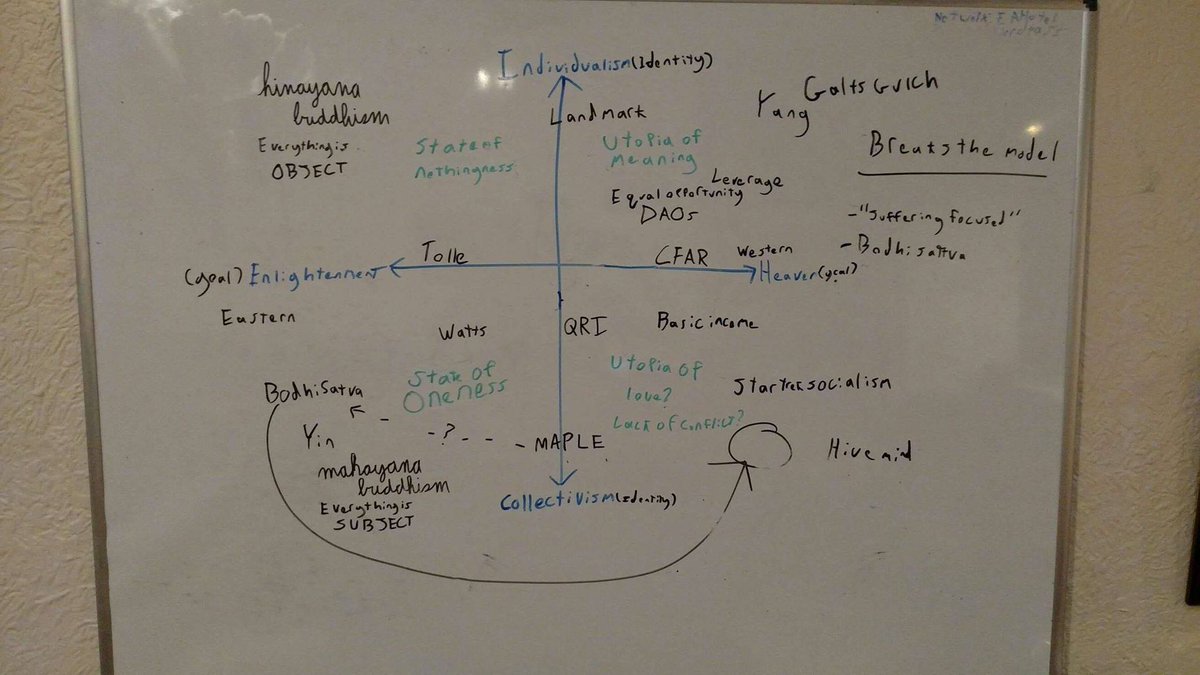 Network EA Hotel
Individualism (Identity)
hinayana
buddhism
Everything is
OBJECT
State of
nethingness
Landmark
Utopia of
Meaning
Leverage
Equal opportunity
DAOs
Yang
Galts Gulch
Breaks the model
- "Suffering focused"
- Bodhisattva
Tolle
CFAR
Western
(goal) Enlightenment
Heaven (goal)
Eastern
Watts
QRI
Basic income
State of
Oneness
Utopia of
love?
Lack of conflict?
Startrek socialism
Bodhisatva
Yin
- - ? - - -
MAPLE
Hivemind
mahayana
buddhism
Everything is
SUBJECT
Collectivism (Identity)